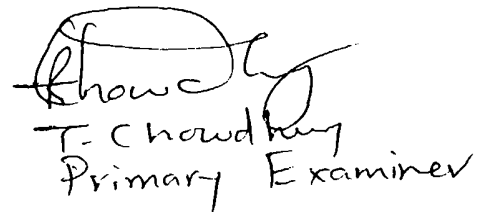 T. Chowdhury
Primary Examiner